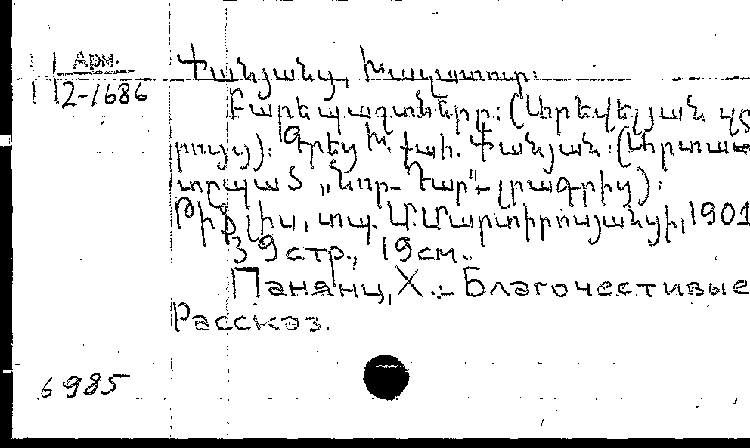 Арм.
12-1686
Փանյանց, Խաչատուր։
Բարեպաշտները։ (Արևելյան
րույց)։ Գրեց Խ. քահ. Փանյան։ (Արտա
տպած „Նոր-Դար"-լրագրից)։
Թիֆլիս, տպ. Մ. Մարտիրոսյանցի, 1901
39 стр., 19 см.
Панянц, Х.:- Благочестивые
Рассказ.
6985